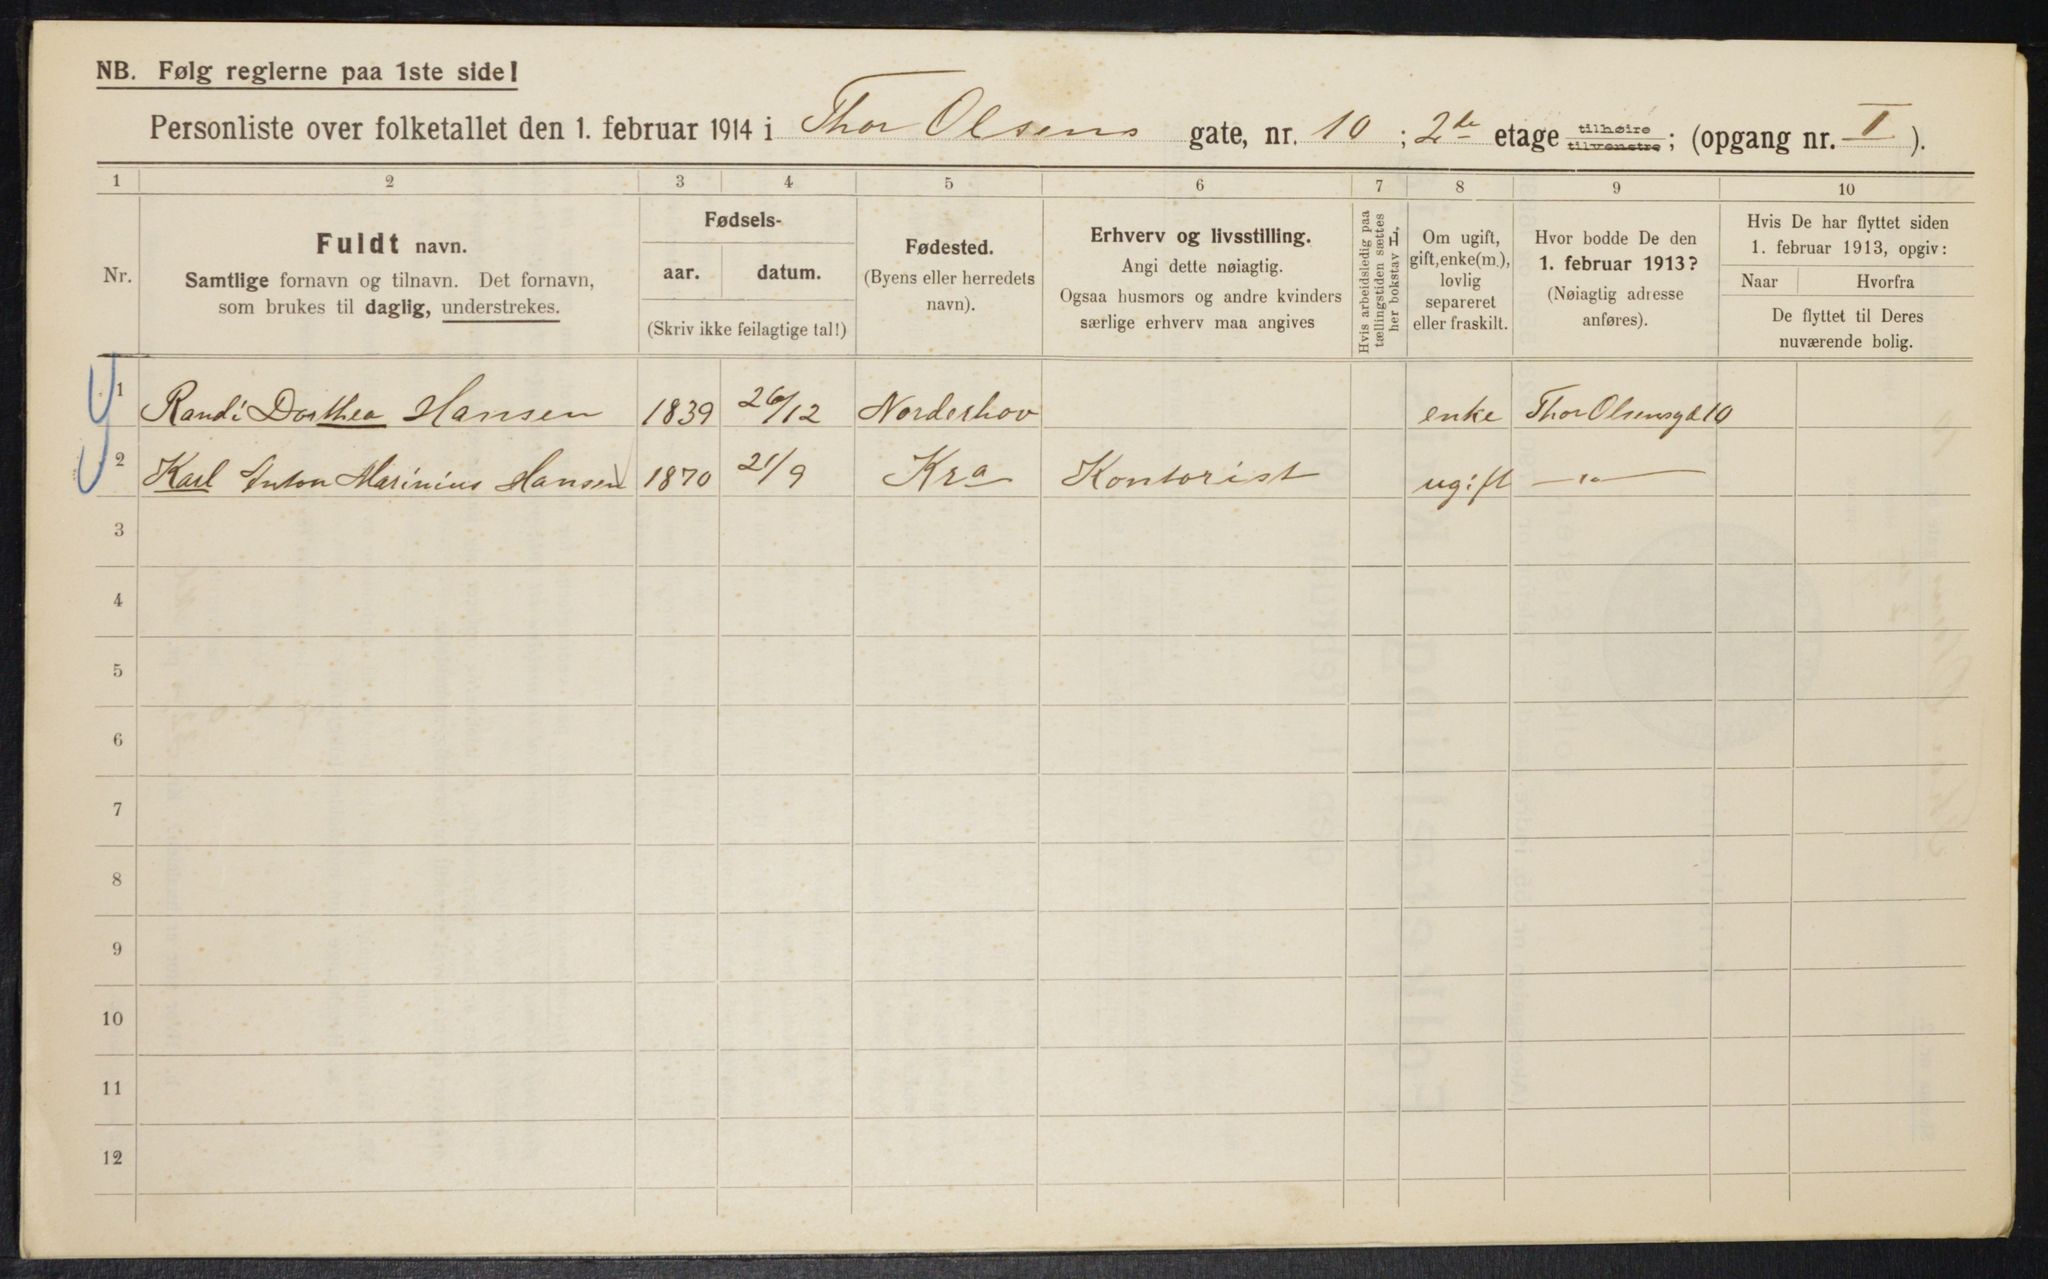 NB. Følg reglerne paa 1ste side!
Personliste over folketallet den 1. februar 1914 i Thor Olsens gate, nr. 10 ; 2de etage tilhøire tilvenstre ; (opgang nr. I ).
1 2 3 4 5 6 7 8 9 10
Nr.
Fuldt navn.
Samtlige fornavn og tilnavn. Det fornavn,
som brukes til daglig, understrekes.
Fødsels-
aar. datum.
(Skriv ikke feilagtige tal!)
Fødested.
(Byens eller herredets
navn).
Erhverv og livsstilling.
Angi dette nøiagtig.
Ogsaa husmors og andre kvinders
særlige erhverv maa angives
Hvis arbeidsledig paa
tællingstiden sættes
her bokstav L.
Om ugift,
gift, enke(m.),
lovlig
separeret
eller fraskilt.
Hvor bodde De den
1. februar 1913?
(Nøiagtig adresse
anføres).
Hvis De har flyttet siden
1. februar 1913, opgiv:
Naar Hvorfra
De flyttet til Deres
nuværende bolig.
1 Randi Dorthea Hansen 1839 26/12 Norderhov enke Thor Olsensgd 10
2 Karl Anton Marinius Hansen 1870 21/9 Kra Kontorist ugift —"—
3
4
5
6
7
8
9
10
11
12